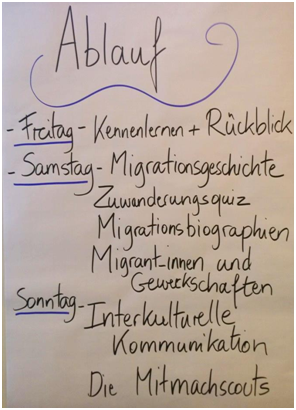 Ablauf
- Freitag - Kennenlernen + Rückblick
- Samstag - Migrationsgeschichte
Zuwanderungsquiz
Migrationsbiographien
Migrant_innen und
Gewerkschaften
Sonntag - Interkulturelle
Kommunikation
Die Mitmachscouts